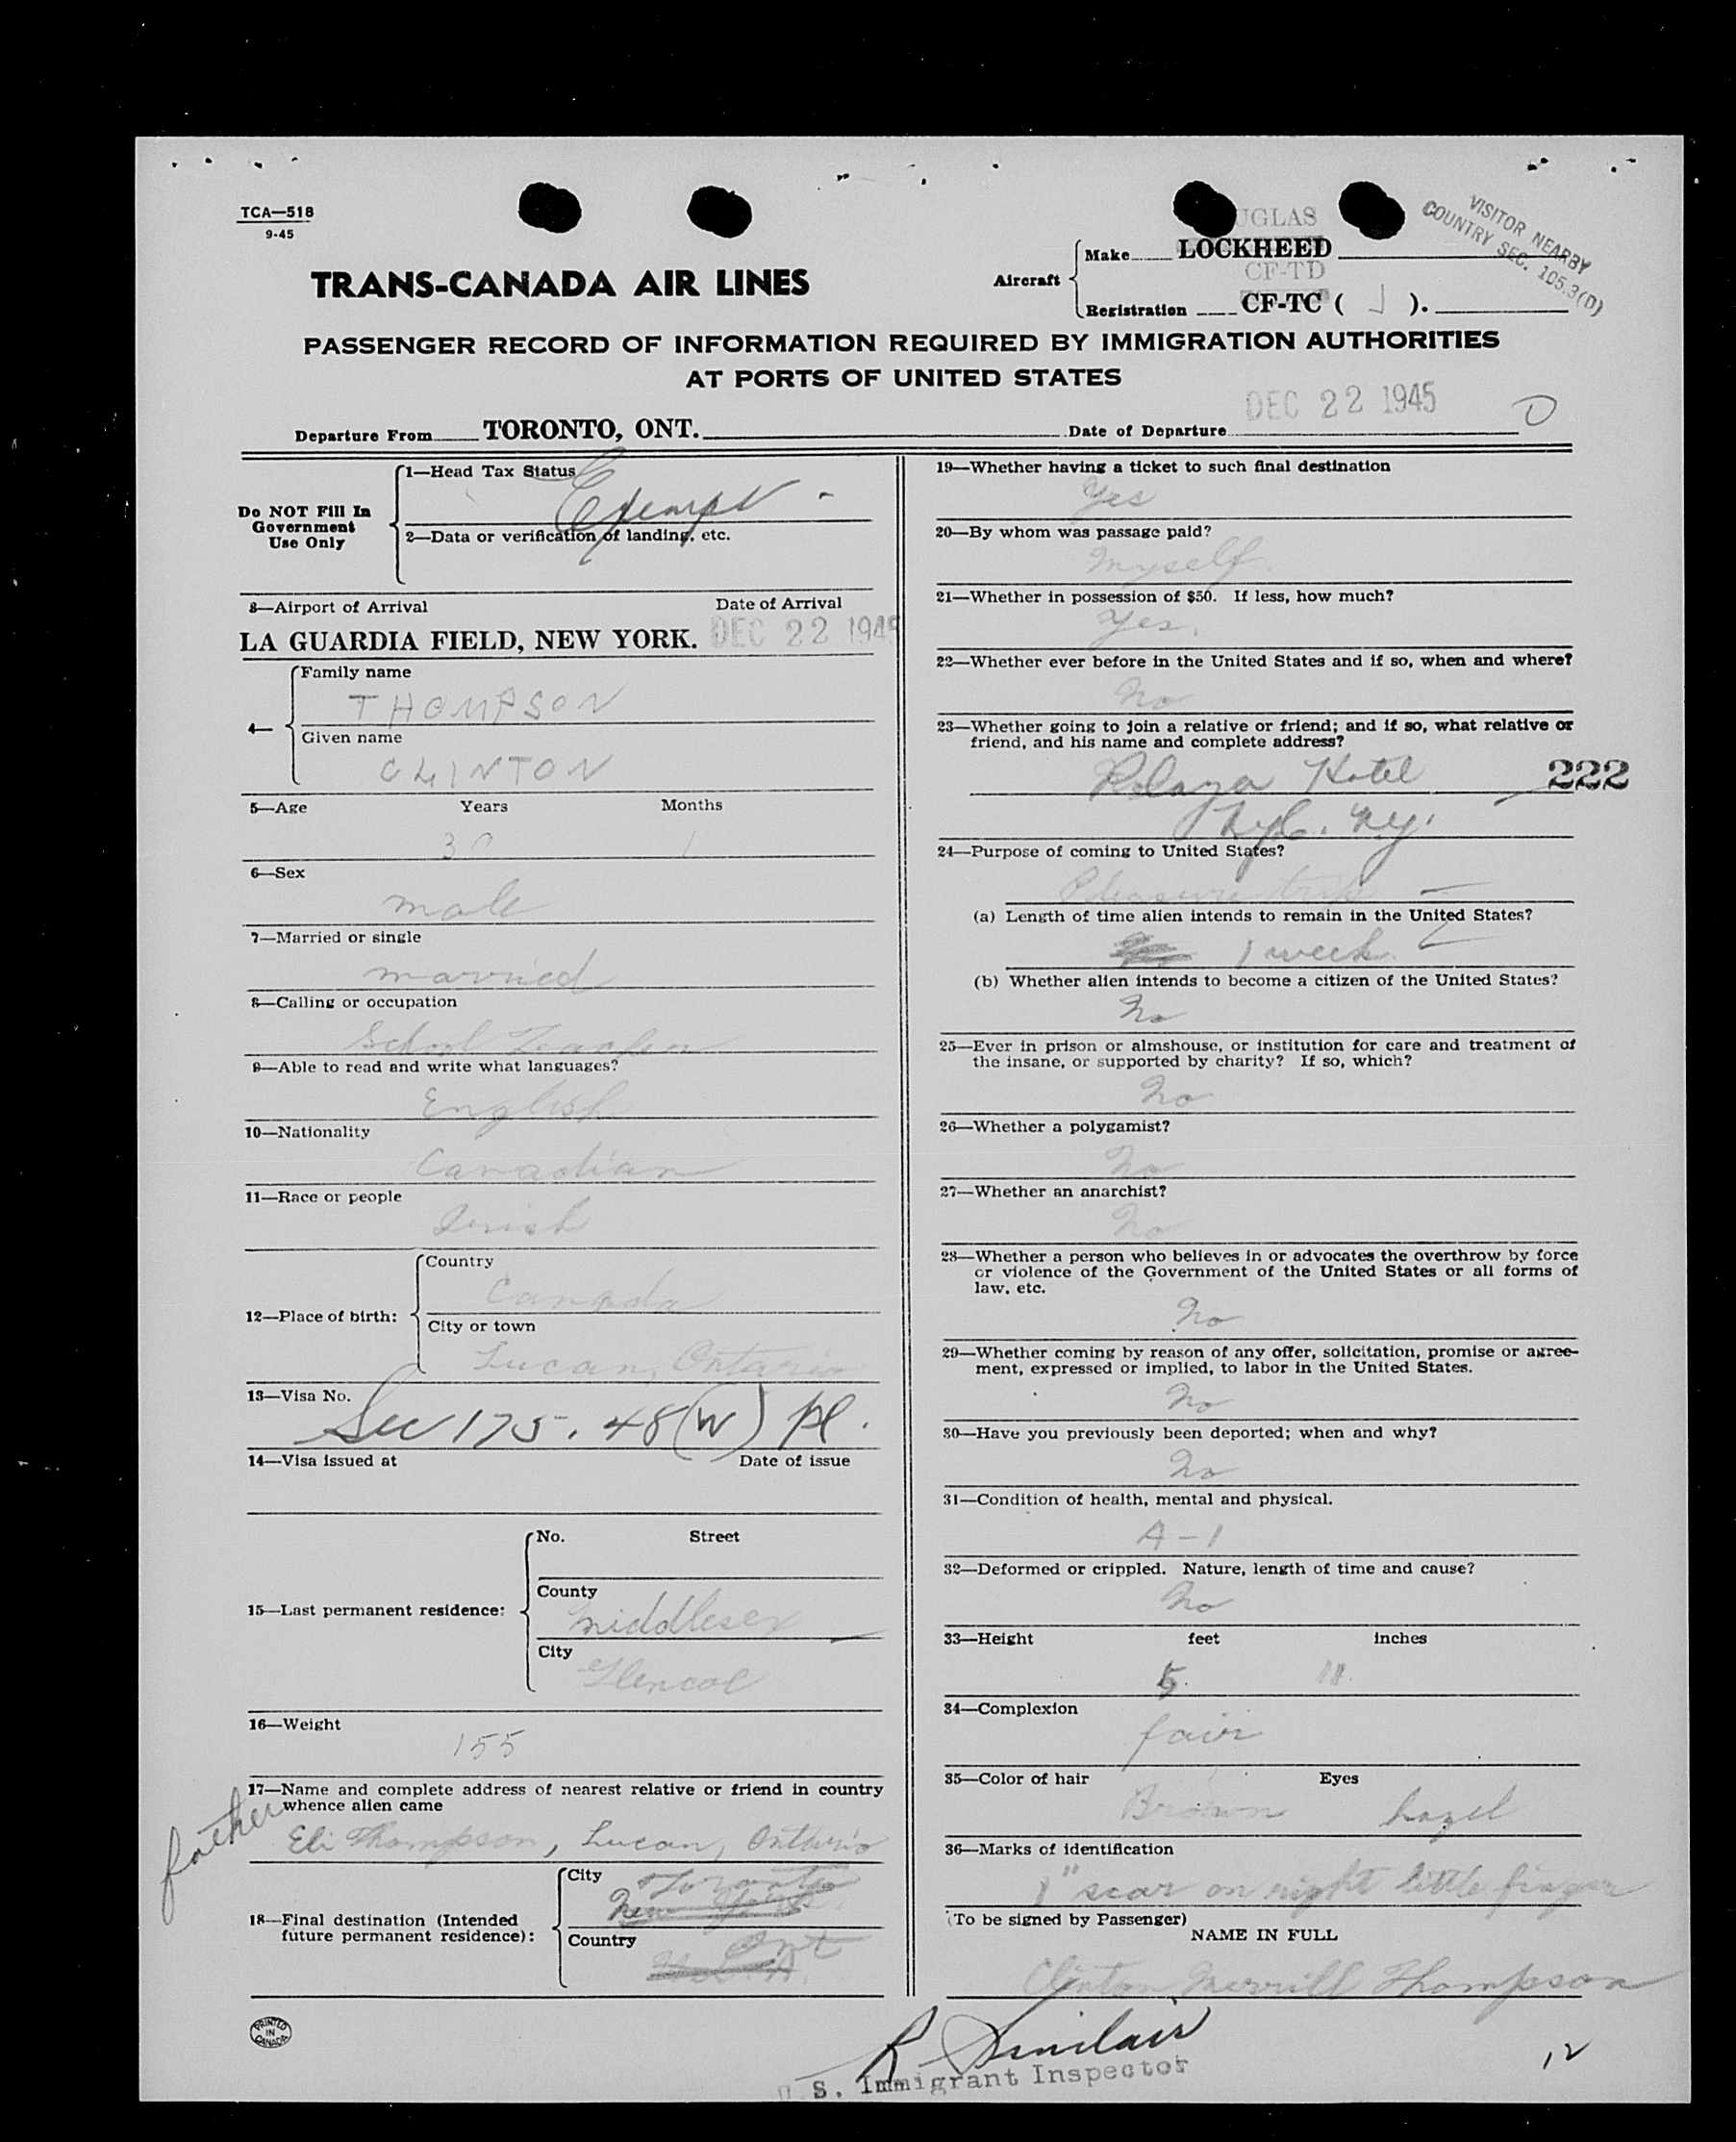 TCA—518
9-45
UGLAS
VISITOR NEARBY
COUNTRY SEC. 105.3(D)
Aircraft
Make LOCKHEED
CF-TD
Registration CF-TC ( J ).
TRANS-CANADA AIR LINES
PASSENGER RECORD OF INFORMATION REQUIRED BY IMMIGRATION AUTHORITIES
AT PORTS OF UNITED STATES
DEC 22 1945
Departure From TORONTO, ONT. Date of Departure
Do NOT Fill In
Government
Use Only
1—Head Tax Status
Exempt -
2—Data or verification of landing, etc.
3—Airport of Arrival Date of Arrival
LA GUARDIA FIELD, NEW YORK. DEC 22 1945
4—
Family name
THOMPSON
Given name
CLINTON
5—Age Years Months
30 1
6—Sex
male
7—Married or single
married
8—Calling or occupation
School Teacher
9—Able to read and write what languages?
English
10—Nationality
Canadian
11—Race or people
Irish
12—Place of birth:
Country
Canada
City or town
Lucan, Ontario
13—Visa No.
Sec 175.48(W) pl.
14—Visa issued at Date of issue
15—Last permanent residence:
No. Street
County
Middlesex
City
Glencoe
16—Weight
155
17—Name and complete address of nearest relative or friend in country
whence alien came
father
Eli Thompson, Lucan, Ontario
18—Final destination (Intended
future permanent residence):
City
Toronto
New York
Country
Ont
PRINTED
IN
CANADA
19—Whether having a ticket to such final destination
Yes
20—By whom was passage paid?
Myself.
21—Whether in possession of $50. If less, how much?
Yes.
22—Whether ever before in the United States and if so, when and where?
No
23—Whether going to join a relative or friend; and if so, what relative or
friend, and his name and complete address?
Plaza Hotel
222
Nyc. Ny.
24—Purpose of coming to United States?
Pleasure trip
(a) Length of time alien intends to remain in the United States?
1 week.
(b) Whether alien intends to become a citizen of the United States?
No
25—Ever in prison or almshouse, or institution for care and treatment of
the insane, or supported by charity? If so, which?
No
26—Whether a polygamist?
No
27—Whether an anarchist?
No
28—Whether a person who believes in or advocates the overthrow by force
or violence of the Government of the United States or all forms of
law, etc.
No
29—Whether coming by reason of any offer, solicitation, promise or agree-
ment, expressed or implied, to labor in the United States.
No
30—Have you previously been deported; when and why?
No
31—Condition of health, mental and physical.
A-1
32—Deformed or crippled. Nature, length of time and cause?
No
33—Height feet inches
5. 11.
34—Complexion
fair
35—Color of hair Eyes
Brown hazel
36—Marks of identification
1" scar on right little finger
(To be signed by Passenger)
NAME IN FULL
Clinton Merrill Thompson
R Sinclair
U. S. Immigrant Inspector
12